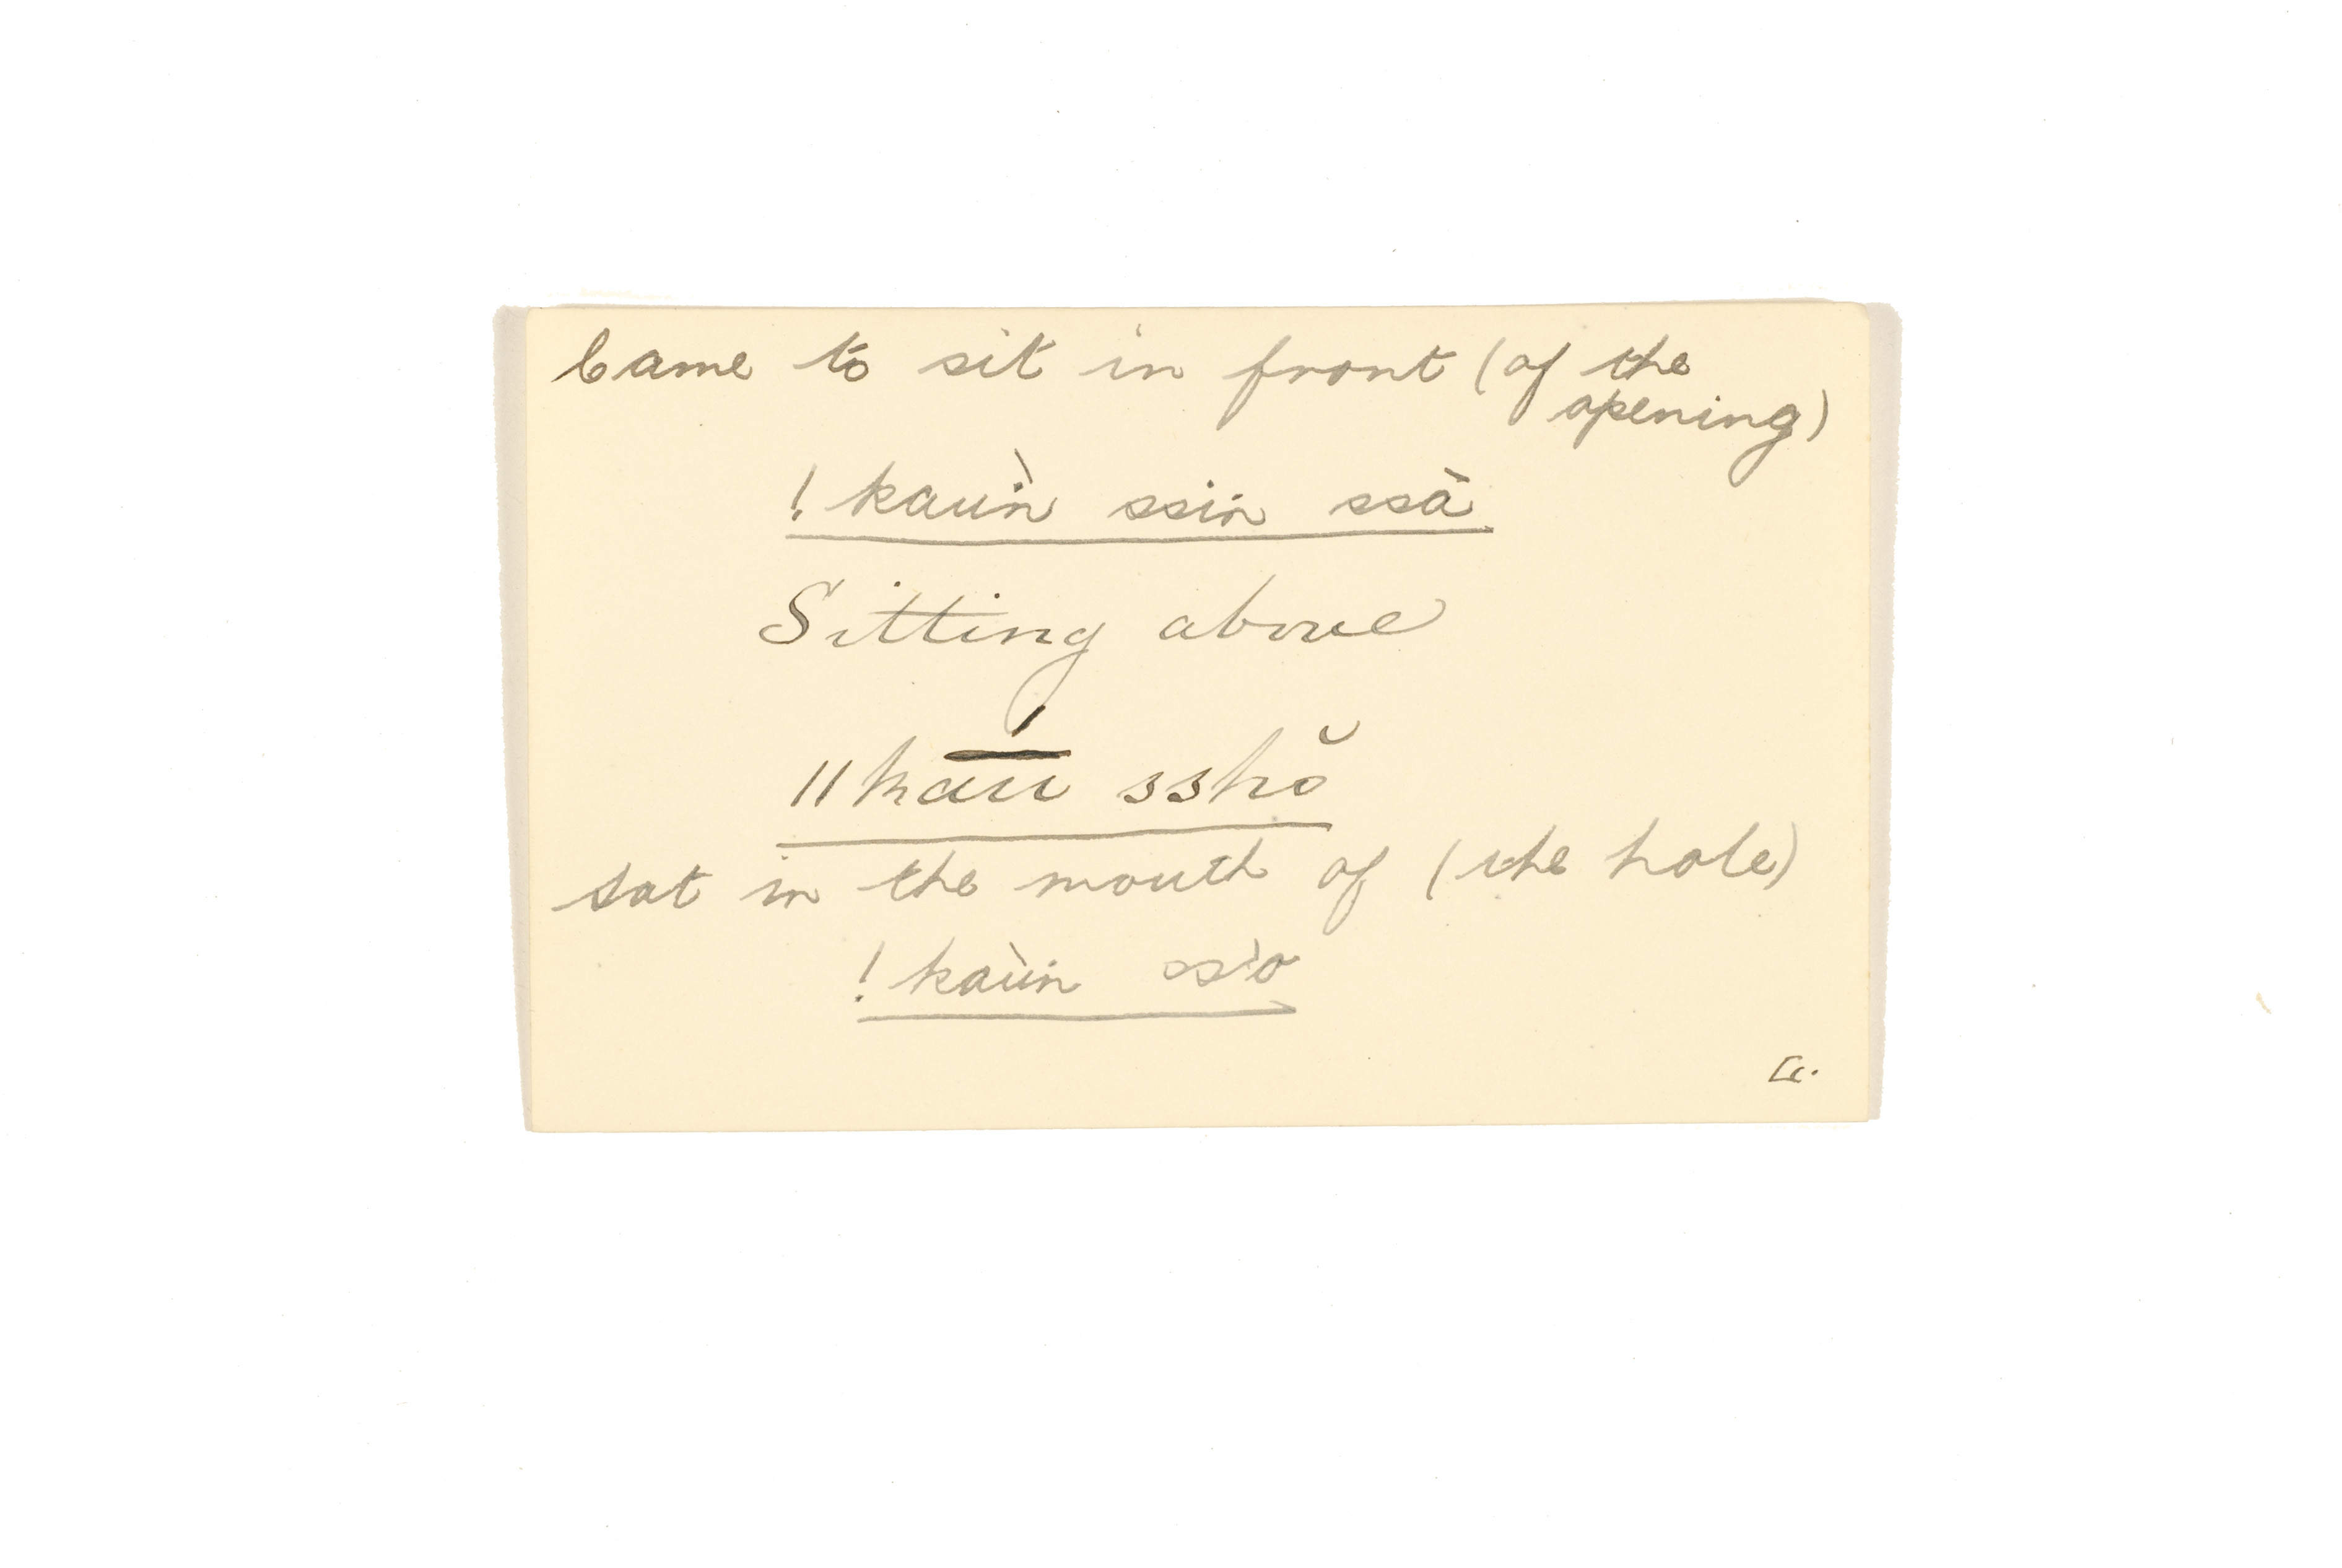 Came to sit in front (of the
opening)
!kauǹ ssin ssā
Sitting above
ǁkā́u sshŏ
sat in the mouth of (the hole)
!kaùin ss'o